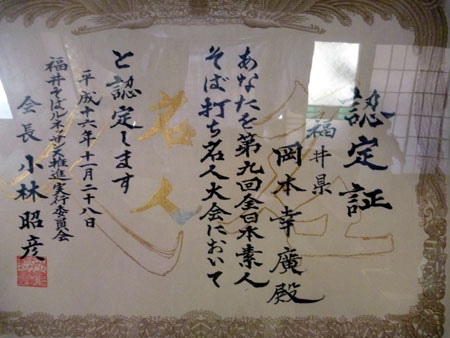 認定証
福井県
岡本幸廣殿
あなたを第九回全日本素人
そば打ち名人大会において
名人
と認定します
平成十六年十一月二十八日
福井そばルネッサンス推進実行委員会
会長 小林昭彦